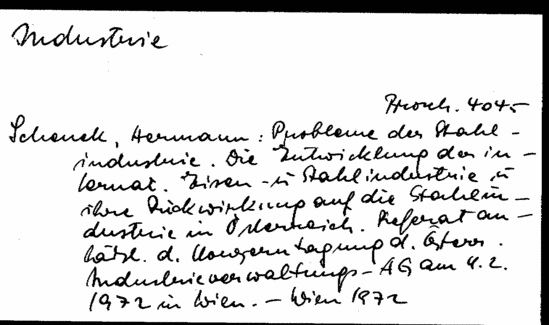 Industrie
Brosch. 4045
Schenck, Hermann: Probleme der Stahl-
industrie. Die Entwicklung der in-
ternat. Eisen- u Stahlindustrie u
ihre Rückwirkung auf die Stahlin-
dustrie in Österreich. Referat an-
läßl. d. Konzerntagung d. Österr.
Industrieverwaltungs-AG am 4.2.
1972 in Wien. - Wien 1972